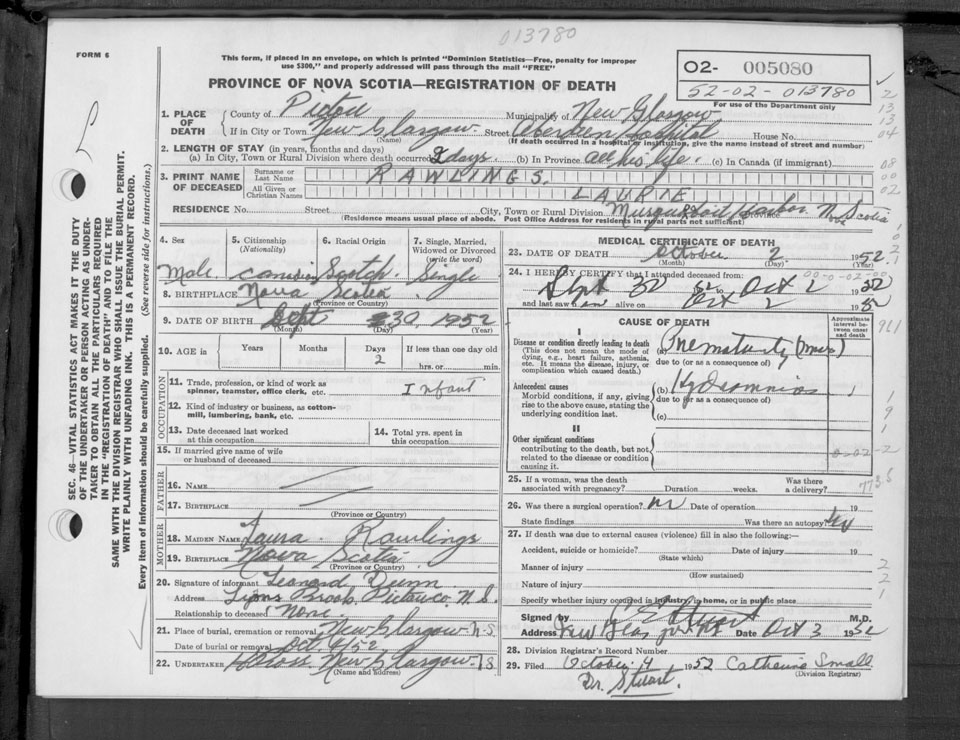 013780
FORM 6
This form, if placed in an envelope, on which is printed "Dominion Statistics—Free, penalty for improper
use $300," and properly addressed will pass through the mail "FREE"
PROVINCE OF NOVA SCOTIA—REGISTRATION OF DEATH
02- 005080
52-02-013780
For use of the Department only
1. PLACE OF DEATH
County of Pictou Municipality of New Glasgow
If in City or Town New Glasgow Street Aberdeen Hospital House No.
(Name) (If death occurred in a hospital or institution, give the name instead of street and number)
2. LENGTH OF STAY (in years, months and days)
(a) In City, Town or Rural Division where death occurred 2 days. (b) In Province all his life. (c) In Canada (if immigrant)
3. PRINT NAME OF DECEASED
Surname or Last Name RAWLINGS.
All Given or Christian Names LAURIE
RESIDENCE No. Street City, Town or Rural Division Musquodoboit Harbor Province N. Scotia
(Residence means usual place of abode. Post Office Address for residents in rural parts not sufficient)
4. Sex 5. Citizenship (Nationality) 6. Racial Origin 7. Single, Married, Widowed or Divorced (write the word)
Male. Canadian Scotch. Single
8. BIRTHPLACE Nova Scotia
(Province or Country)
9. DATE OF BIRTH Sept 30, 1952
(Month) (Day) (Year)
10. AGE in Years Months Days If less than one day old
2 hrs. or min.
OCCUPATION
11. Trade, profession, or kind of work as spinner, teamster, office clerk, etc. Infant
12. Kind of industry or business, as cotton-mill, lumbering, bank, etc.
13. Date deceased last worked at this occupation
14. Total yrs. spent in this occupation
15. If married give name of wife or husband of deceased
FATHER
16. NAME
17. BIRTHPLACE
(Province or Country)
MOTHER
18. MAIDEN NAME Laura Rawlings
19. BIRTHPLACE Nova Scotia
(Province or Country)
20. Signature of informant Leonard Dunn
Address Lyons Brook, Pictou Co. N.S.
Relationship to deceased None.
21. Place of burial, cremation or removal New Glasgow N.S
Date of burial or removal Oct. 4/52
22. UNDERTAKER New Glasgow N.S.
(Name and address)
MEDICAL CERTIFICATE OF DEATH
23. DATE OF DEATH October 2 1952
(Month) (Day)
24. I HEREBY CERTIFY that I attended deceased from:
00-0-02-00
Sept 30 52 to Oct 2 1952
and last saw alive on Oct 2 1952
CAUSE OF DEATH
Approximate interval between onset and death
I
Disease or condition directly leading to death
(This does not mean the mode of dying, e.g., heart failure, asthenia, etc. It means the disease, injury, or complication which caused death.)
(a) Prematurity
due to (or as a consequence of)
Antecedent causes
Morbid conditions, if any, giving rise to the above cause, stating the underlying condition last.
(b) Hydramnios
due to (or as a consequence of)
(c)
II
Other significant conditions
contributing to the death, but not related to the disease or condition causing it.
25. If a woman, was the death associated with pregnancy? Duration weeks. Was there a delivery?
26. Was there a surgical operation? no Date of operation 19
State findings Was there an autopsy?
27. If death was due to external causes (violence) fill in also the following:—
Accident, suicide or homicide? Date of injury 19
(State which)
Manner of injury
(How sustained)
Nature of injury
Specify whether injury occurred in industry, in home, or in public place
Signed by Stuart M.D.
Address New Glasgow NS Date Oct 3 1952
28. Division Registrar's Record Number
29. Filed October 4 1952 Catherine Small
(Division Registrar)
Dr. Stuart.
SEC. 46—VITAL STATISTICS ACT MAKES IT THE DUTY
OF THE UNDERTAKER OR PERSON ACTING AS UNDER-
TAKER TO OBTAIN ALL THE PARTICULARS REQUIRED
IN THE "REGISTRATION OF DEATH" AND TO FILE THE
SAME WITH THE DIVISION REGISTRAR WHO SHALL ISSUE THE BURIAL PERMIT.
WRITE PLAINLY WITH UNFADING INK. THIS IS A PERMANENT RECORD.
Every item of information should be carefully supplied. (See reverse side for instructions.)